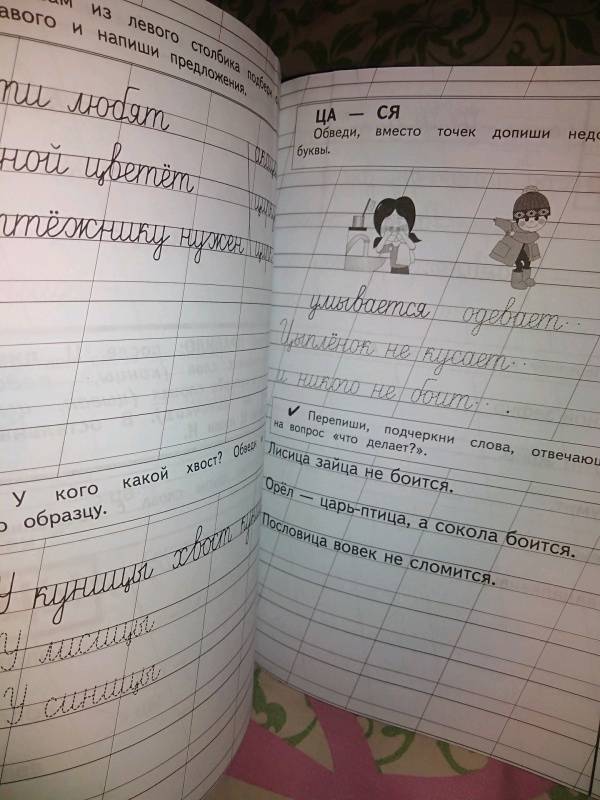 из левого столбика подбери
и напиши предложения.
любят
цветёт
нужен
У кого какой хвост? Обведи
образцу.
У куницы хвост
У лисицы
У синицы
ЦА — СЯ
Обведи, вместо точек допиши
буквы.
умывается одевает..
Цыплёнок не кусает..
и никто не боит.. .
✓ Перепиши, подчеркни слова,
на вопрос «что делает?».
Лисица зайца не боится.
Орёл — царь-птица, а сокола боится.
Пословица вовек не сломится.